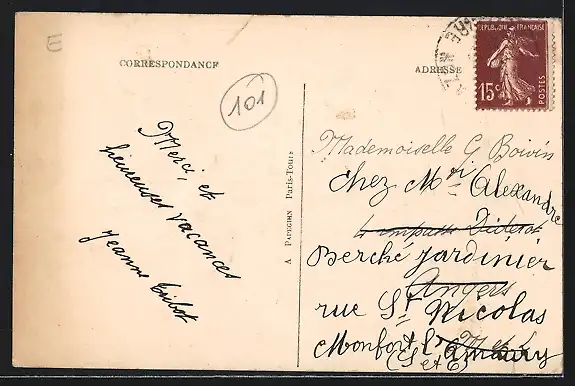 E
CORRESPONDANCE
ADRESSE
101
REPUBLIQUE FRANÇAISE
15c
POSTES
Merci, et
heureuses vacances
Jeanne
A PAPEGHIN Paris-Tours
Mademoiselle G Boivin
chez Mr Alexandre
4 impasse Diderot
Berché jardinier
Angers
rue St Nicolas
Monfort l'Amaury
(S et O)